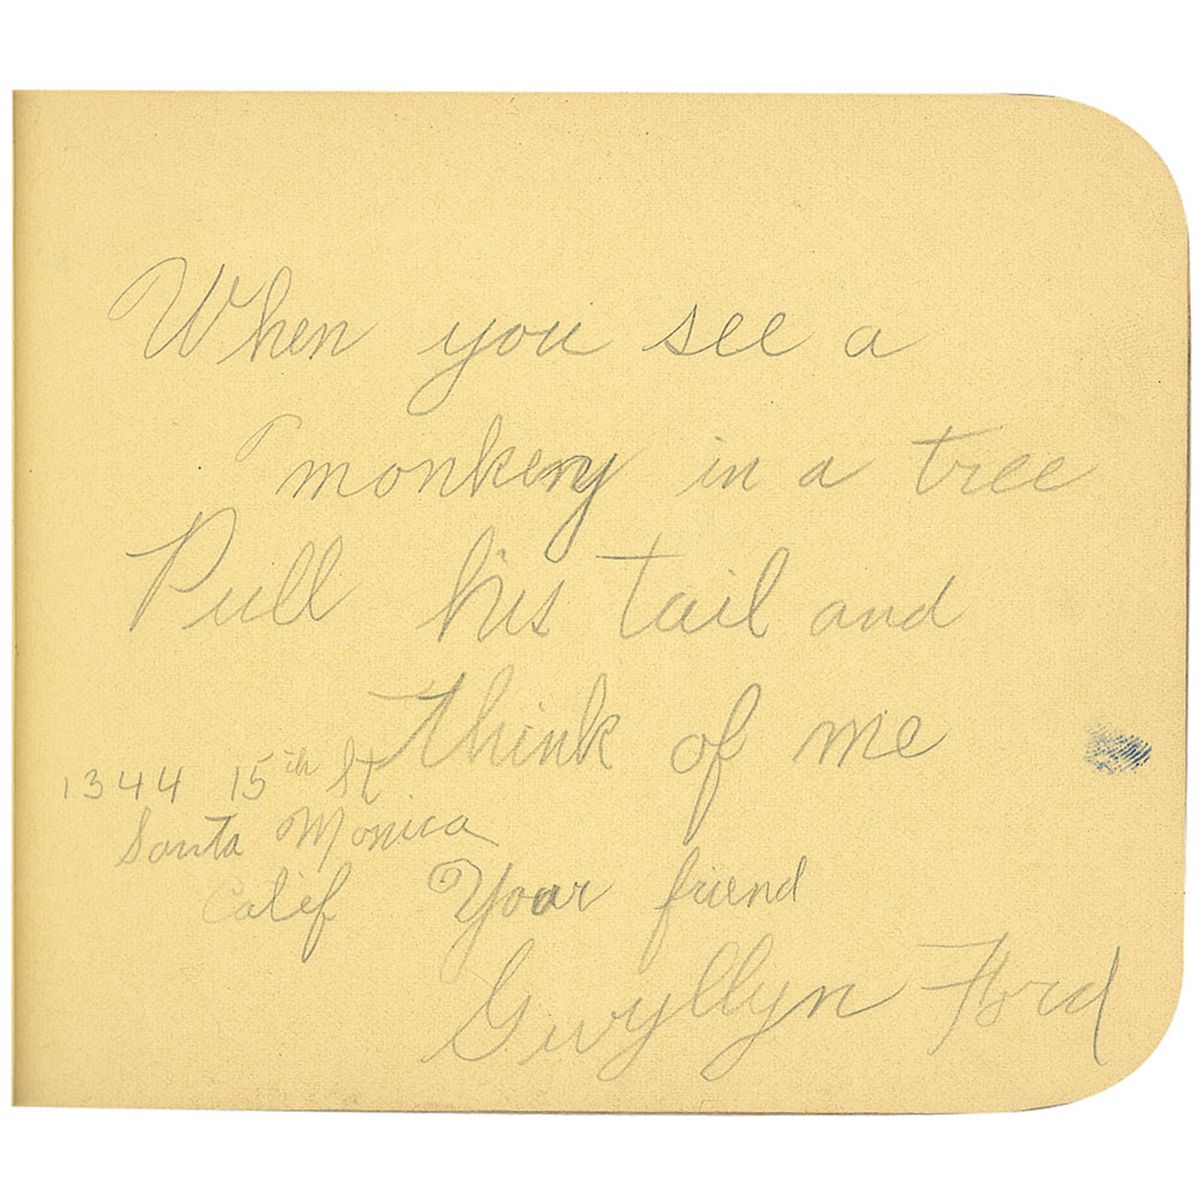 When you see a
monkey in a tree
Pull his tail and
think of me
1344 15th St
Santa Monica
Calif
Your friend
Gwyllyn Ford